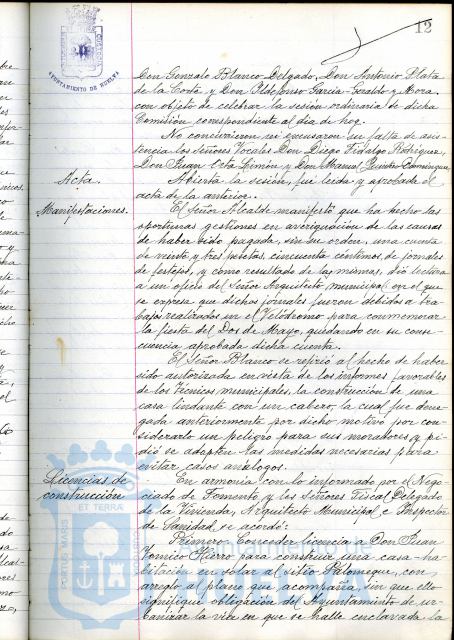 12
AYUNTAMIENTO DE HUELVA
Don Gonzalo Blanco Delgado, Don Antonio Plata
de la Corte y Don Ildefonso García-Geraldo y Mora.
con objeto de celebrar la sesión ordinaria de dicha
Comisión correspondiente al día de hoy.
No concurrieron ni excusaron su falta de asis-
tencia los Señores Vocales Don Diego Fidalgo Rodríguez,
Don Juan Orta Limón y Don Manuel Domínguez
Acta.
Abierta la sesión, fué leída y aprobada el
acta de la anterior.
Manifestaciones.
El Señor Alcalde manifestó que ha hecho las
oportunas gestiones en averiguación de las causas
de haber sido pagada, sin su orden, una cuenta
de veinte y tres pesetas, cincuenta céntimos de jornales
de festejos, y como resultado de las mismas, dió lectura
a un oficio del Señor Arquitecto municipal en el que
se expresa que dichos jornales fueron debidos a tra-
bajos realizados en el Velódromo para conmemorar
la fiesta del Dos de Mayo, quedando en su conse-
cuencia aprobada dicha cuenta.
El Señor Blanco se refirió al hecho de haber
sido autorizada en vista de los informes favorables
de los Técnicos municipales, la construcción de una
casa lindante con un cabezo, la cual fué dene-
gada anteriormente por dicho motivo por con-
siderarlo un peligro para sus moradores y pi-
dió se adopten las medidas necesarias para
evitar casos análogos.
Licencias de
construcción
En armonía con lo informado por el Nego-
ciado de Fomento, y los señores Fiscal Delegado
de la Vivienda, Arquitecto Municipal e Inspector
de Sanidad, se acordó:
Primero: Conceder licencia a Don Juan
Hierro para construir una casa-ha-
bitación en solar al sitio Palomeque, con
arreglo al plano que acompaña, sin que ello
signifique obligación del Ayuntamiento de ur-
banizar la vía en que se halle enclavada la
PORTUS MARIS
ET TERRA
CUSTODIA